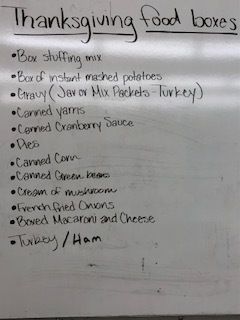 Thanksgiving food boxes
• Box stuffing mix
• Box of instant mashed potatoes
• Gravy (Jar or Mix Packets - Turkey)
• Canned yams
• Canned Cranberry Sauce
• Pies
• Canned Corn
• Canned Green beans
• Cream of mushroom
• French fried Onions
• Boxed Macaroni and Cheese
• Turkey / Ham